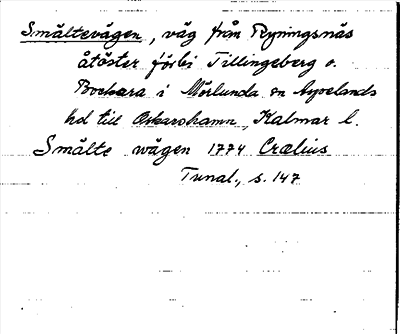 Smältevägen, väg från Ryningsnäs
åtöster förbi Tillingeberg o.
Bockara i Mörlunda sn Aspelands
hd till Oskarshamn, Kalmar l.
Smålte wägen 1774 Crælius
Tunal., s. 147